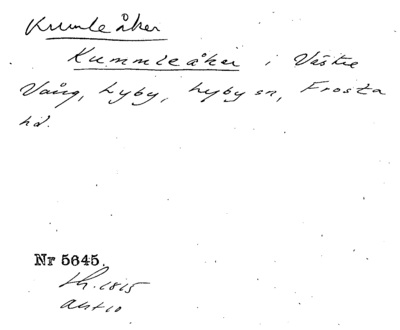 Krumleåker
Kummleåker i Västre
Vång, Lyby, Lyby sn, Frosta
hd.
Nr 5645.
1815
akt 10